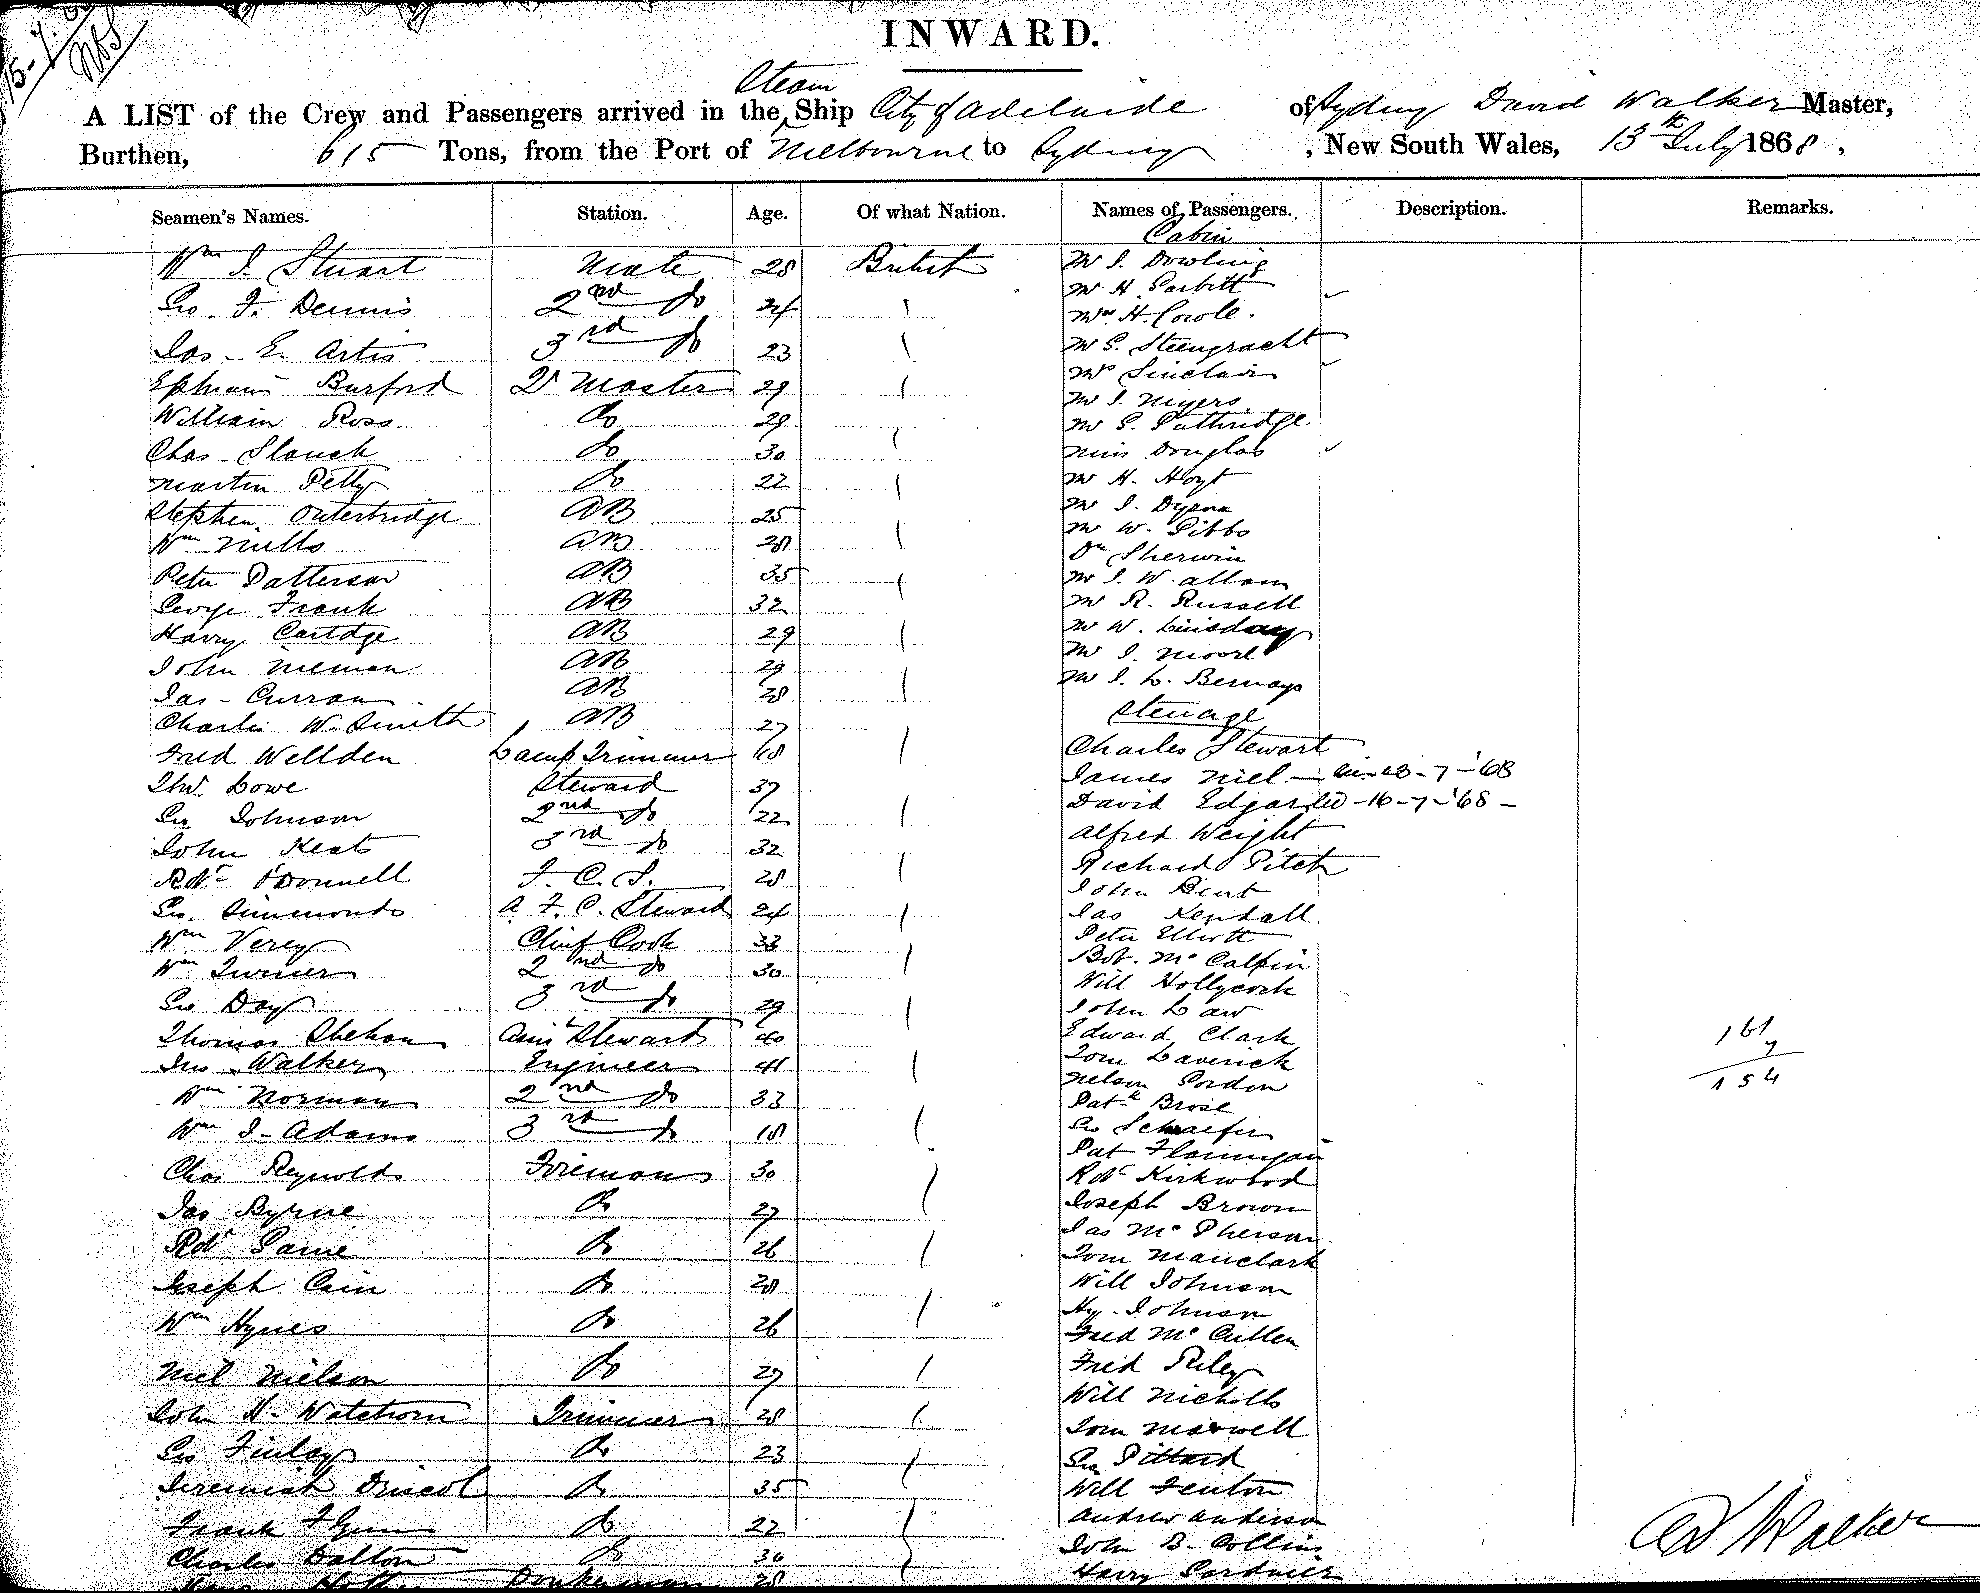 INWARD.
Steam
A LIST of the Crew and Passengers arrived in the Ship City of Adelaide of Sydney David Walker Master,
Burthen, 615 Tons, from the Port of Melbourne to Sydney, New South Wales, 13th July 1868.
Seamen's Names. Station. Age. Of what Nation. Names of Passengers. Description. Remarks.
Cabin
Wm J Stuart Mate 28 British Mr J. Dowling
Mr H.
Geo. F. Dennis 2nd do 24 Mrs H. Cowle.
Jas. E. Artis 3rd do 23 Mr G. Steengracht
Mrs Sinclair
Ephraim Burford Qr Master 29 Mr J. Myers
William Ross do 29 Mr G. Puthridge
Chas. Slouch do 30 Miss Douglas
Martin Petty do 22 Mr H. Hoyt
Stephen Outerbridge AB 25 Mr J.
Wm Mills AB 28 Mr W. Gibbs
Dr Sherwin
Peter Patterson AB 35 Mr J. W. Allom
George Frank AB 32 Mr R. Russell
Harry AB 29 Mr W. Lindsay
John Nieman AB 29 Mr J. Moore
Jas. Curran AB 28 Mr J. L. Bernays
Charles W. Smith AB 27 Steerage
Fred Wellden Lamp Trimmer 18 Charles Stewart
Thos. Lowe Steward 37 James Niel 7-'68
Geo Johnson 2nd do 22 David Edgar 16-7-'68
John Keats 3rd do 32 Alfred Weight
Robt O'Donnell F. C. S. 28 Richard Pitch
John Bent
Geo. Simmonds A. F. C. Steward 24 Jas Kendall
Wm Verey Chief Cook 33 Peter Elliott
Wm Turner 2nd do 30 Bob. McCalpin
Will Hollycock
Geo Day 3rd do 29 John Law
Thomas Shehan Assist Steward 40 Edward Clark
Jno. Walker Engineer 41 Tom Laverick
Wm Norman 2nd do 33 Nelson Gordon
Patk Brose
Wm J. Adams 3rd do 18 Geo Schraefer
Pat Flannigan
Chas Reynolds Fireman 30 Robt Kirkwood
Jas Byrne do 27 Joseph Brown
Jas McPherson
Robt Paine do 26 Tom Manclark
Joseph Cain do 28 Will Johnson
Hy. Johnson
Wm Hynes do 26 Fred McCullen
Niel Nielson do 27 Fred Riley
Will Nicholls
John H. Watchorn Trimmer 28 Tom Maxwell
Geo Finlay do 23 Geo Pittard
Jeremiah Driscol do 35 Will Fenton
Frank Flynn do 22 Andrew Anderson
Charles Dalton do 30 John B. Collins
Donkeyman 28 Harry Gardner
161
7
154
D Walker